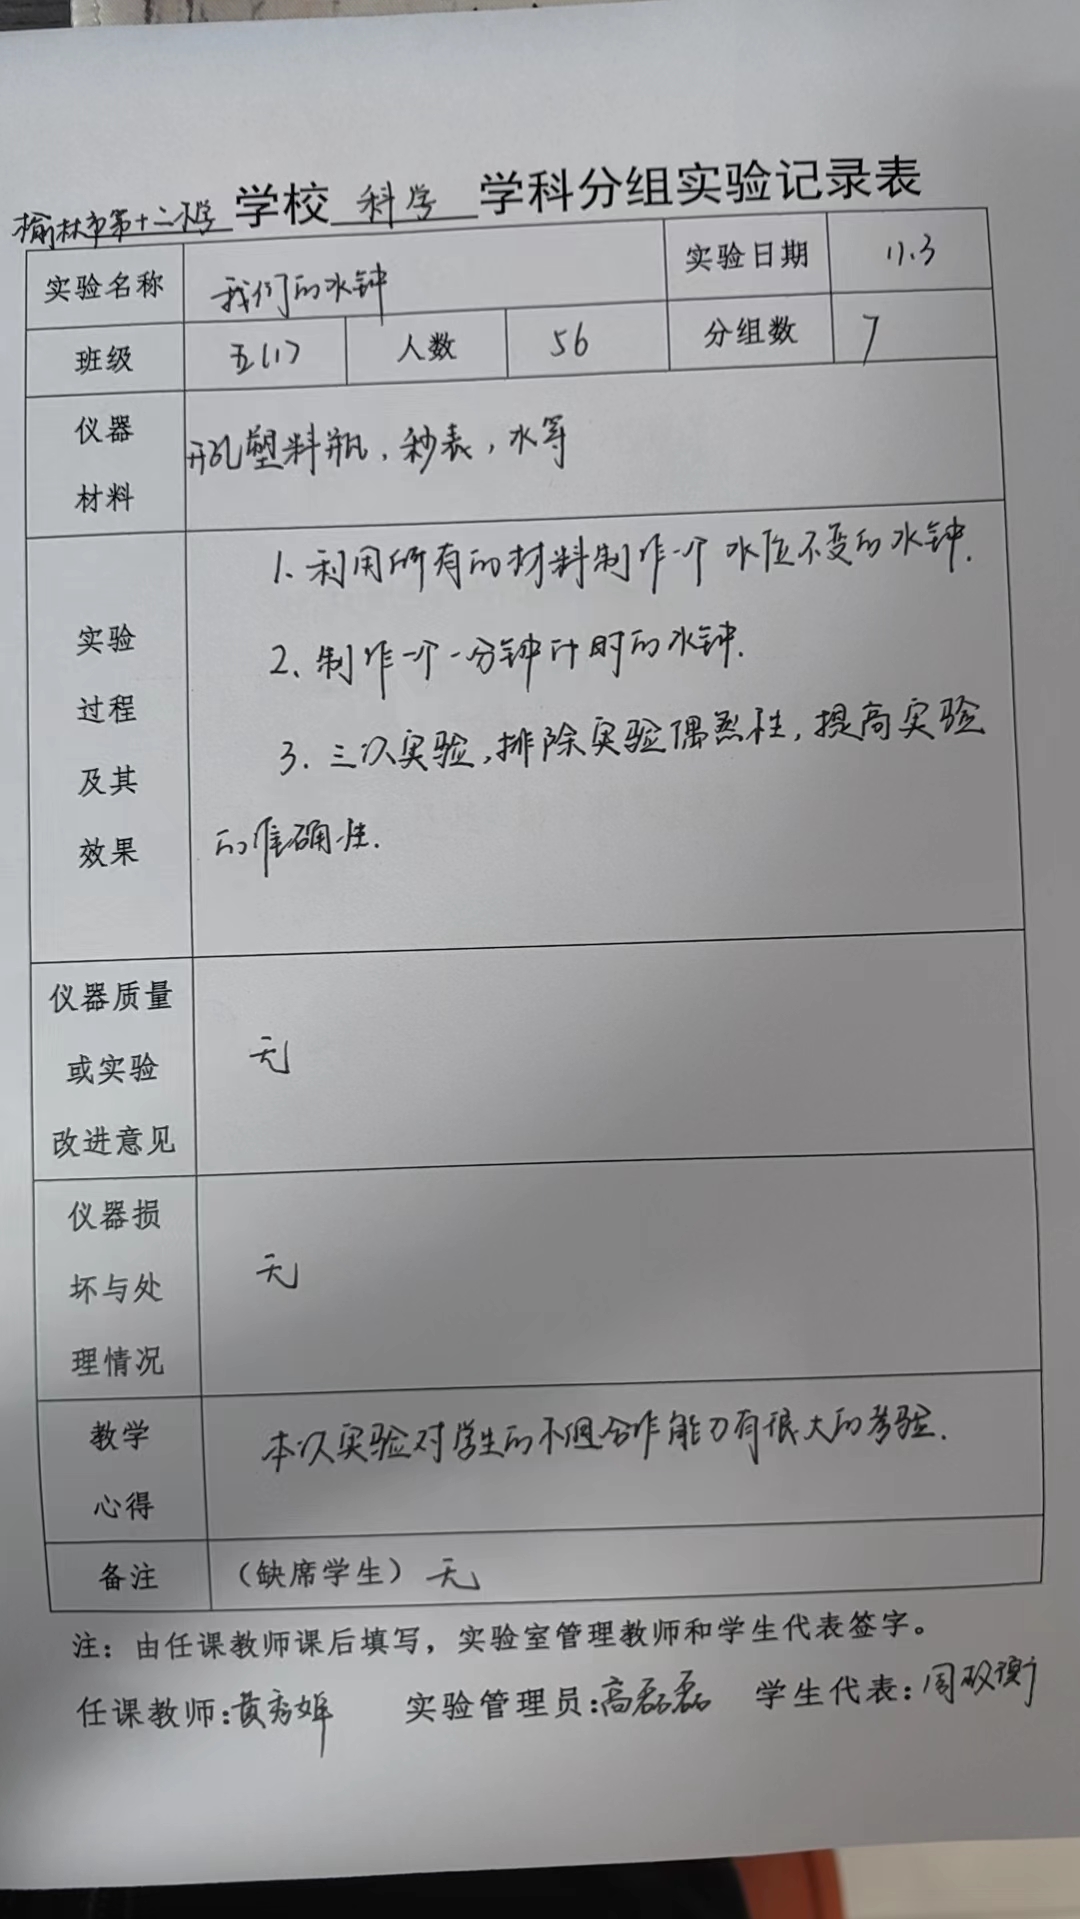 榆林市第十二小学 学校 科学 学科分组实验记录表
实验名称 我们的水钟 实验日期 11.3
班级 五(1) 人数 56 分组数 7
仪器
材料
开孔塑料瓶，秒表，水等
实验
过程
及其
效果
1、利用所有的材料制作一个水位不变的水钟.
2、制作一个一分钟计时的水钟.
3、三次实验,排除实验偶然性,提高实验
的准确性.
仪器质量
或实验
改进意见
无
仪器损
坏与处
理情况
无
教学
心得
本次实验对学生的小组合作能力有很大的考验.
备注 （缺席学生）无
注：由任课教师课后填写，实验室管理教师和学生代表签字。
任课教师:黄秀 实验管理员:高磊磊 学生代表:周